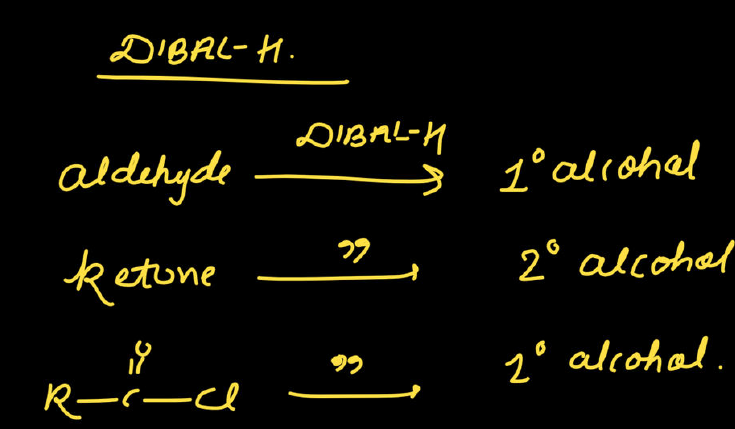 DIBAL-H.
aldehyde DIBAL-H → 1° alcohol
ketone ” → 2° alcohol
O
R—C—Cl ” → 1° alcohol.